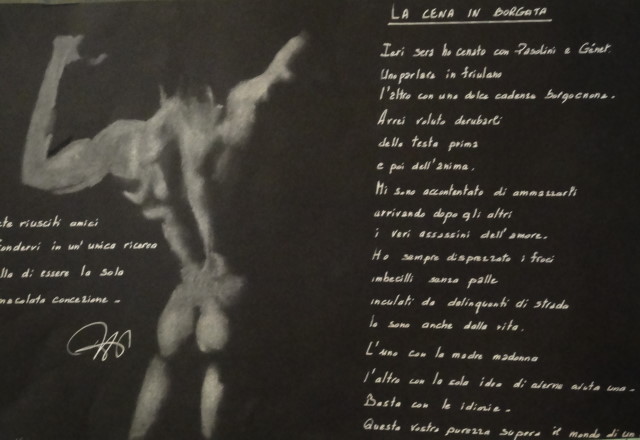 LA CENA IN BORGATA
Ieri sera ho cenato con Pasolini e Génet
Uno parlava in friulano
l'altro con una dolce cadenza borgognona.
Avrei voluto derubarti
della testa prima
e poi dell'anima.
Mi sono accontentato di ammazzarti
arrivando dopo gli altri
i veri assassini dell'amore.
Ho sempre disprezzato i froci
imbecilli senza palle
inculati da delinquenti di strada
lo sono anche dalla vita.
L'uno con la madre madonna
l'altro con la sola idea di averne avuta una.
Basta con le idiozie.
Questa vostra purezza supera il mondo di un
ete riusciti amici
fondervi in un'unica ricerca
lla di essere la sola
macolata concezione.